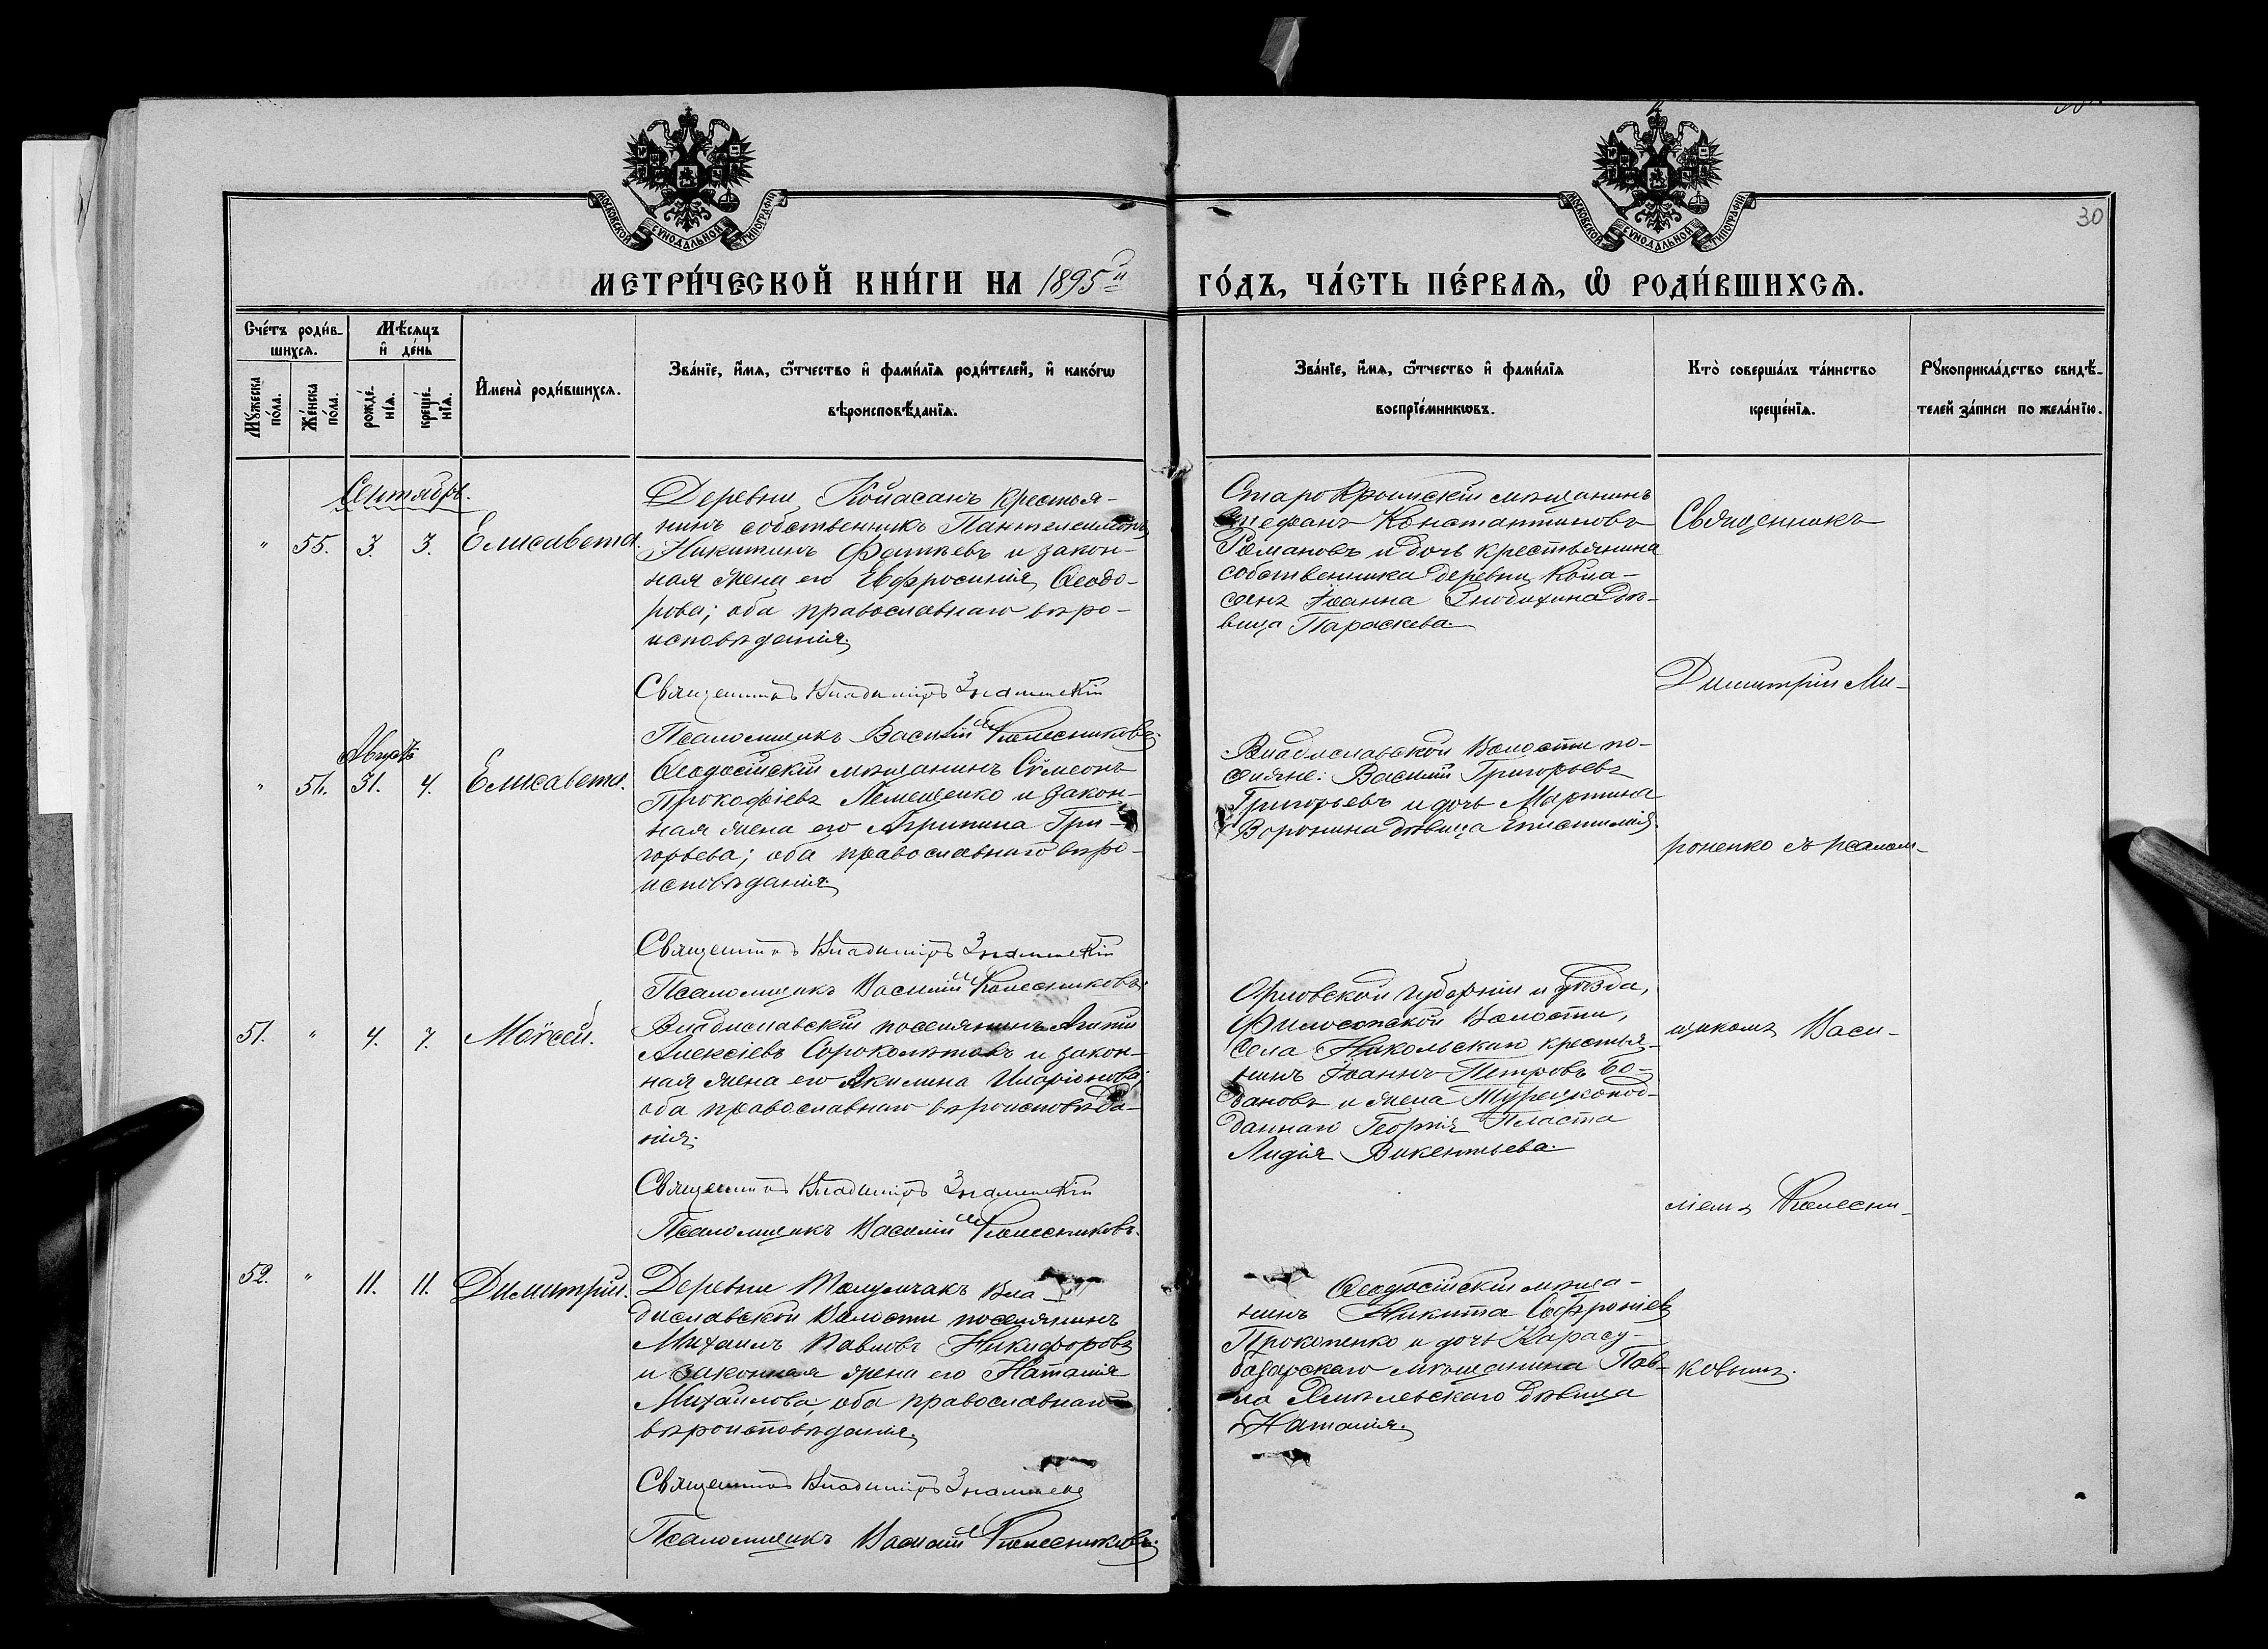 30
МОСКОВСКОЙ СѴНОДАЛЬНОЙ ТИПОГРАФІИ
МОСКОВСКОЙ СѴНОДАЛЬНОЙ ТИПОГРАФІИ
МЕТРИ́ЧЕСКОЙ КНИ́ГИ НА 1895й
ГО́ДЪ, ЧА́СТЬ ПЕ́РВАѦ, Ѡ҆ РОДИ́ВШИХСѦ.
Сче́тъ роди́в-
шихсѧ.
Мѣ́сѧцъ
и҆ де́нь
Мꙋ́жеска
по́ла.
Же́нска
по́ла.
рожде́-
нїѧ.
креще́-
нїѧ.
И҆мена̀ роди́вшихсѧ.
Зва́нїе, и҆́мѧ, ѻ҆́тчество и҆ фами́лїѧ роди́телей, и҆ како́гѡ
вѣроисповѣ́данїѧ.
Зва́нїе, и҆́мѧ, ѻ҆́тчество и҆ фами́лїѧ
воспрїе́мникѡвъ.
Кто̀ соверша́лъ та́инство
креще́нїѧ.
Рꙋкоприкла́дство свидѣ́-
телей за́писи по жела́нїю.
Сентябрь.
" 55. 3. 3. Елисавета.
Деревни Койасанъ крестья-
нинъ собственникъ Пантелеимонъ
Никитинъ Фатѣевъ и закон-
ная жена его Евфросинія Ѳеодо-
рова; оба православнаго вѣро-
исповѣданія.
Священникъ Владиміръ Знаменскій
Псаломщикъ Василій Колесниковъ.
Старокрымскій мѣщанинъ
Стефанъ Константиновъ
Романовъ и дочь крестьянина
собственника деревни Койа-
санъ Іоанна Знобихина дѣ-
вица Параскева.
Священникъ
Димитрій Ми-
Августъ
" 56. 31. 4. Елисавета.
Ѳеодосійскій мѣщанинъ Сѵмеонъ
Прокофіевъ Лемещенко и закон-
ная жена его Агрипина Гри-
горьева; оба православнаго вѣро-
исповѣданія.
Священникъ Владиміръ Знаменскій
Псаломщикъ Василій Колесниковъ.
Владиславской Волости по-
селяне: Василій Григорьевъ
Григорьевъ и дочь Мартина
Воронина дѣвица Епистимія.
роненко съ псалом-
51. " 4. 7. Моѵсей.
Владиславскій поселянинъ
Алексіевъ Сороколѣтовъ и закон-
ная жена его Акилина Иларіонова;
оба православнаго вѣроисповѣда-
нія.
Священникъ Владиміръ Знаменскій
Псаломщикъ Василій Колесниковъ.
Орловской губерніи и уѣзда,
Волости,
села Никольскаго крестья-
нинъ Іоаннъ Петровъ Бо-
дановъ и жена Турецкопод-
даннаго Георгія Пласта
Лидія Викентьева.
щикомъ Васи-
ліемъ Колесни-
52. " 11. 11. Димитрій.
Деревни Вла-
диславской Волости поселянинъ
Михаилъ Павловъ Никифоровъ
и законная жена его Наталія
Михайлова, оба православнаго
вѣроисповѣданія.
Священникъ Владиміръ Знаменскій
Псаломщикъ Василій Колесниковъ.
Ѳеодосійскій мѣща-
нинъ Никита Софроніевъ
Прокопенко и дочь Карасу-
базарскаго мѣщанина Пав-
ла Хмѣлевскаго дѣвица
Наталія.
ковымъ.